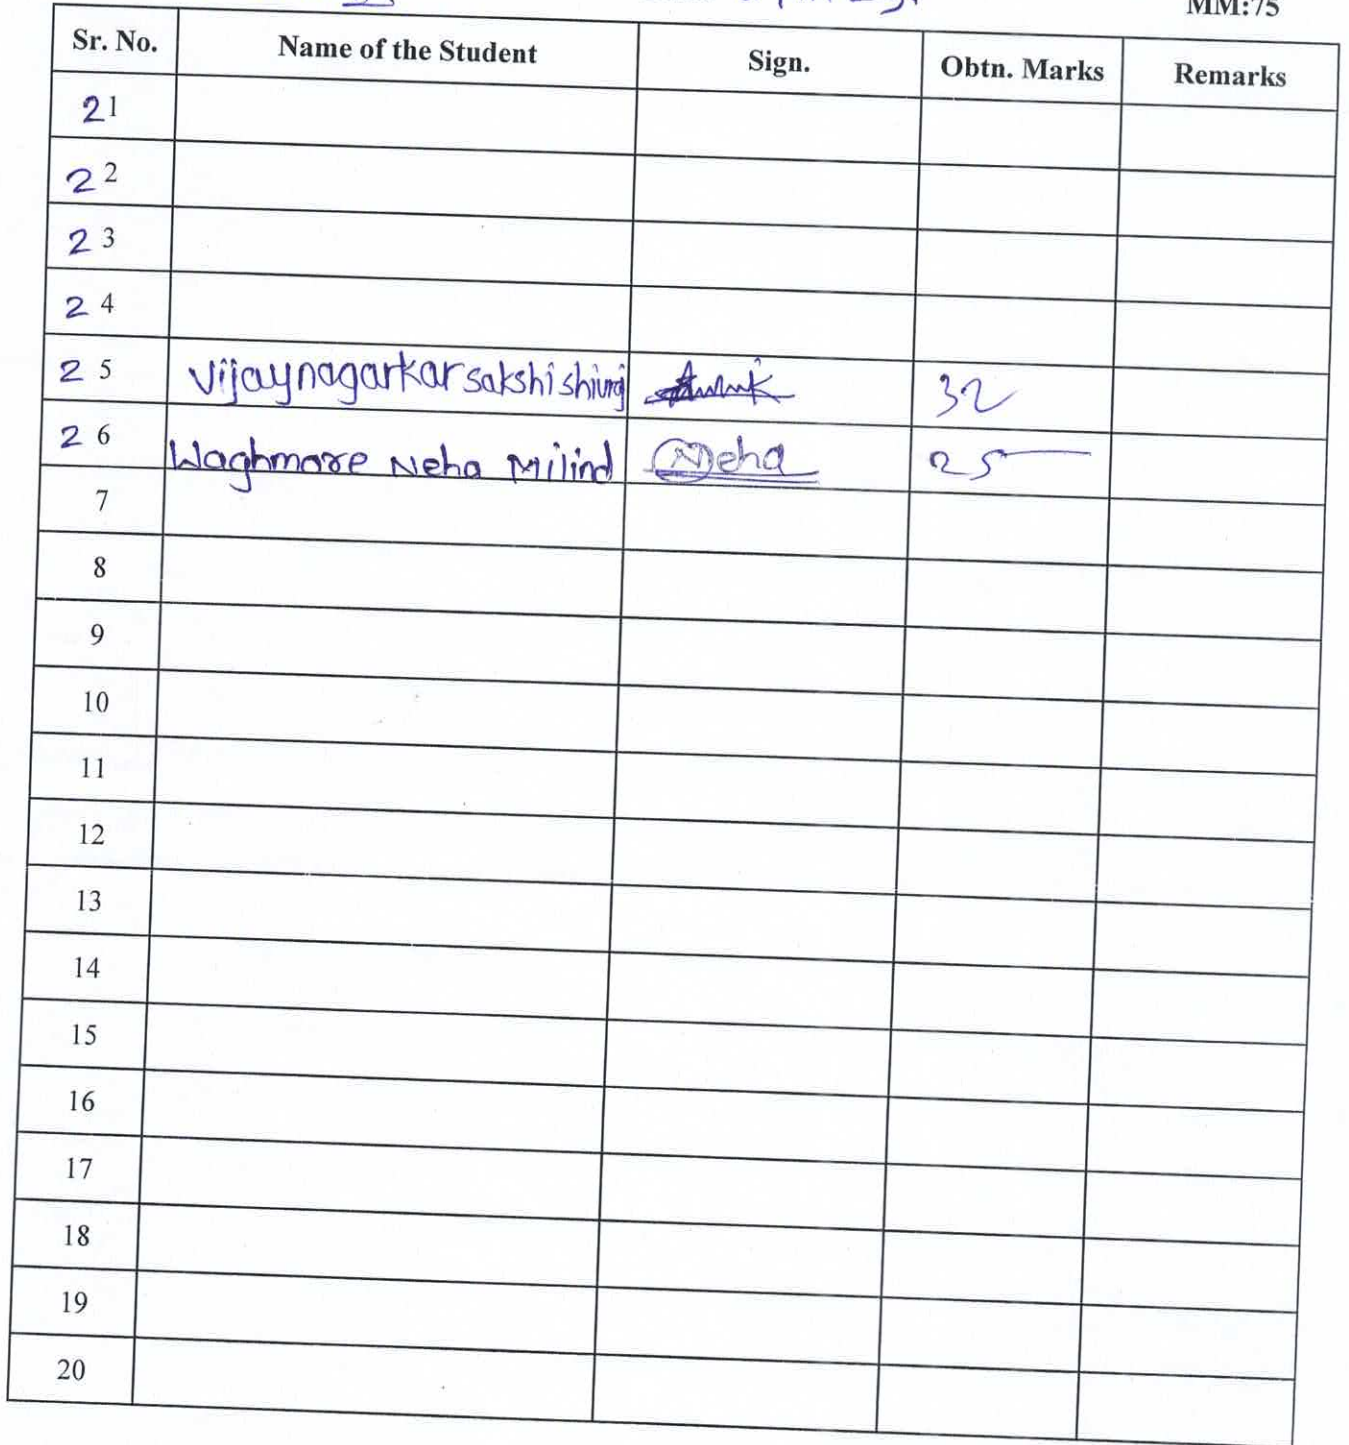 MM:75
Sr. No. Name of the Student Sign. Obtn. Marks Remarks
21
22
23
24
25 Vijaynagarkar sakshi 32
26 Waghmare Neha Milind Neha 25
7
8
9
10
11
12
13
14
15
16
17
18
19
20